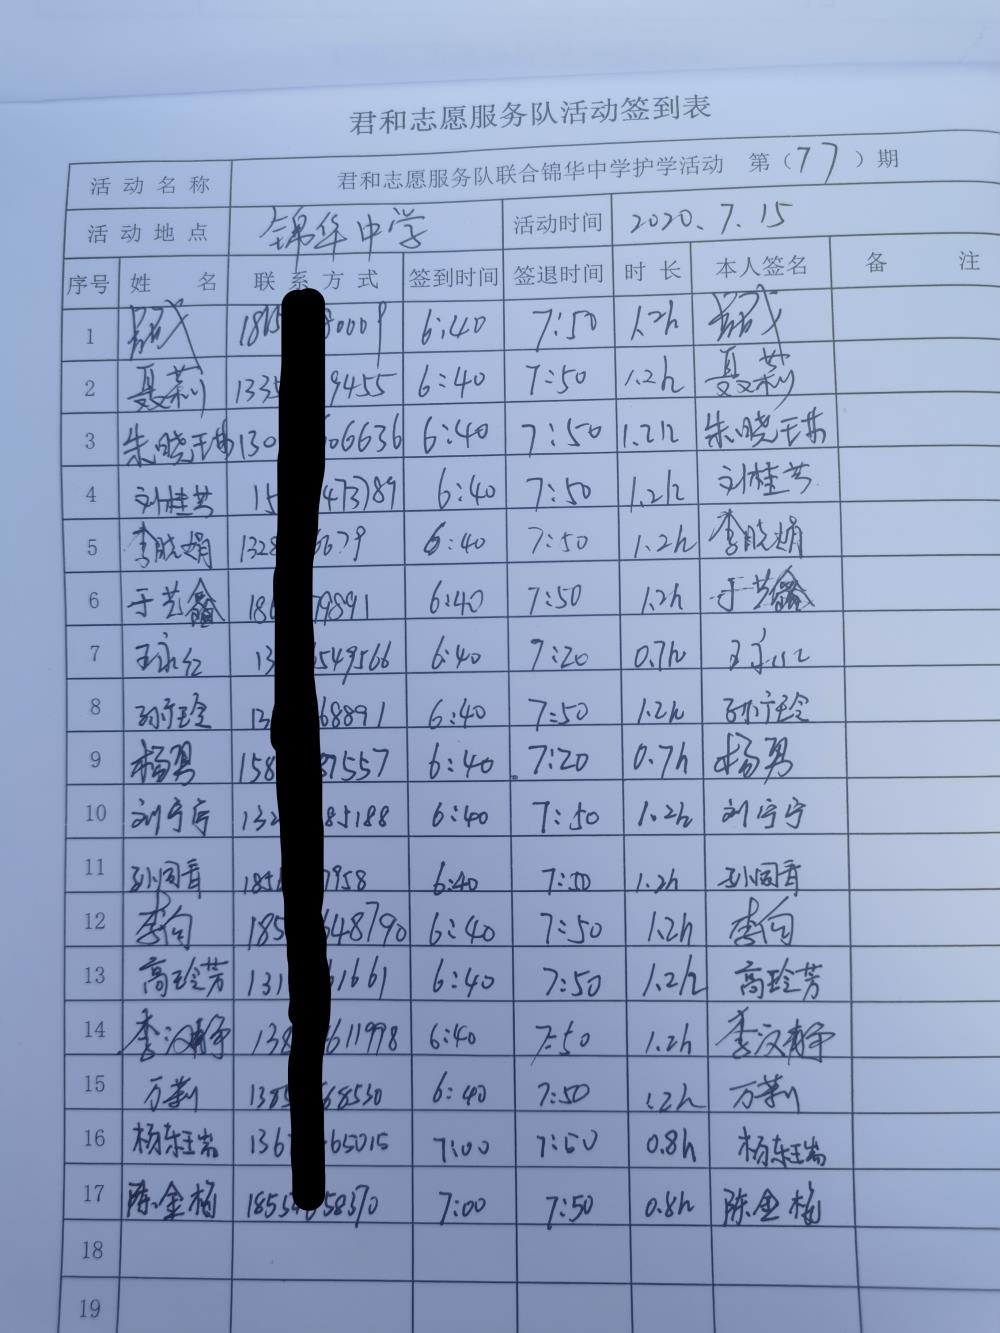 君和志愿服务队活动签到表
活动名称 君和志愿服务队联合锦华中学护学活动 第(77)期
活动地点 锦华中学 活动时间 2020.7.15
序号 姓名 联系方式 签到时间 签退时间 时长 本人签名 备注
1 6:40 7:50 1.2h
2 聂莉 1335 9455 6:40 7:50 1.2h 聂莉
3 朱晓琳 130 06636 6:40 7:50 1.2h 朱晓琳
4 刘桂芳 15 473789 6:40 7:50 1.2h 刘桂芳
5 李晓娟 1328 6679 6:40 7:50 1.2h 李晓娟
6 于芸鑫 186 79891 6:40 7:50 1.2h 于芸鑫
7 王永红 13 549566 6:40 7:20 0.7h
8 孙玲 13 68891 6:40 7:50 1.2h 孙玲
9 杨勇 158 87557 6:40 7:20 0.7h 杨勇
10 刘宁宁 132 85188 6:40 7:50 1.2h 刘宁宁
11 185 7958 6:40 7:50 1.2h
12 李向 185 648790 6:40 7:50 1.2h 李向
13 高玲芳 131 61661 6:40 7:50 1.2h 高玲芳
14 李汶静 138 611998 6:40 7:50 1.2h 李汶静
15 万莉 1385 68530 6:40 7:50 1.2h 万莉
16 杨东瑞 136 65015 7:00 7:50 0.8h 杨东瑞
17 陈金梅 1853 58370 7:00 7:50 0.8h 陈金梅
18
19